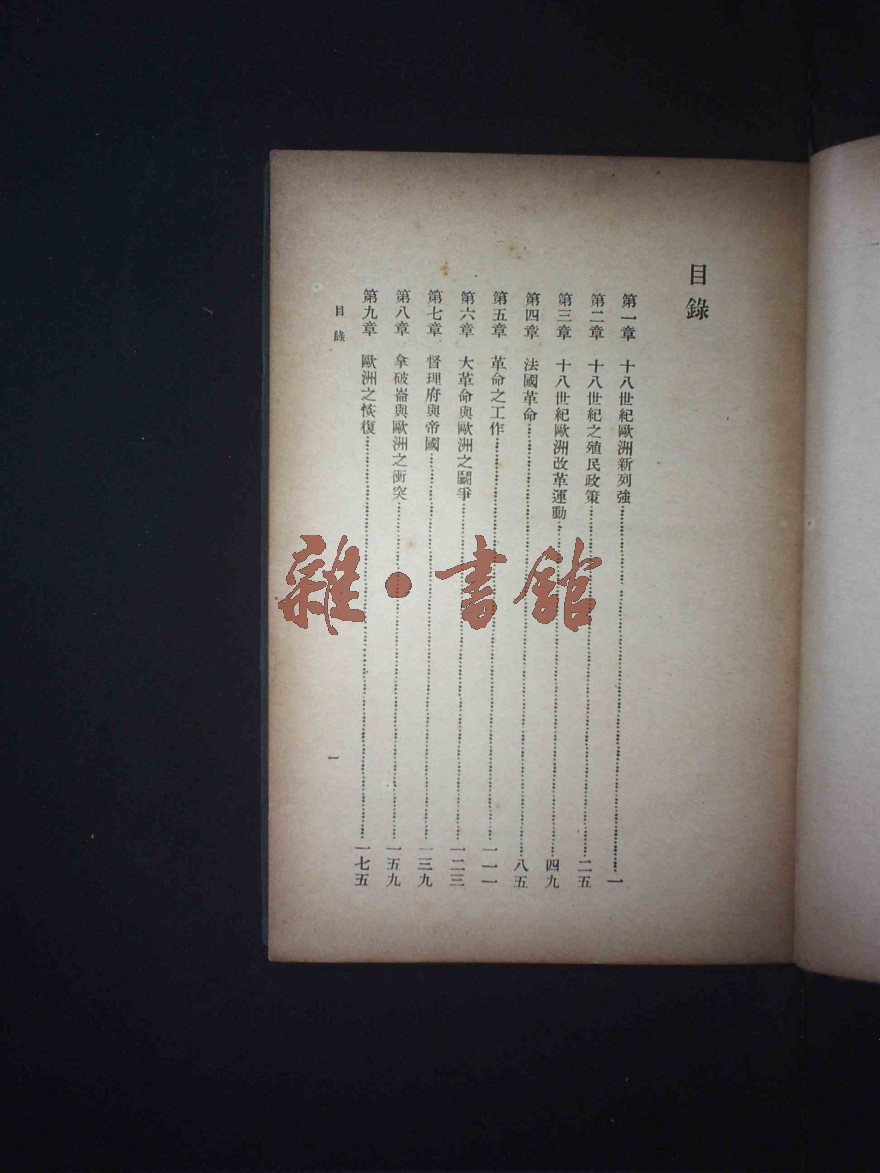 目錄
第一章 十八世紀歐洲新列強……一
第二章 十八世紀之殖民政策……二五
第三章 十八世紀歐洲改革運動……四九
第四章 法國革命……八五
第五章 革命之工作……一一一
第六章 大革命與歐洲之鬬爭……一二三
第七章 督理府與帝國……一三九
第八章 拿破崙與歐洲之衝突……一五九
第九章 歐洲之恢復……一七五
目錄
一
雜·書館